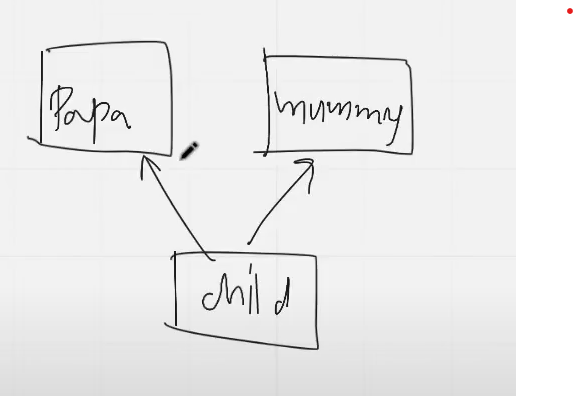 Papa
mummy
child